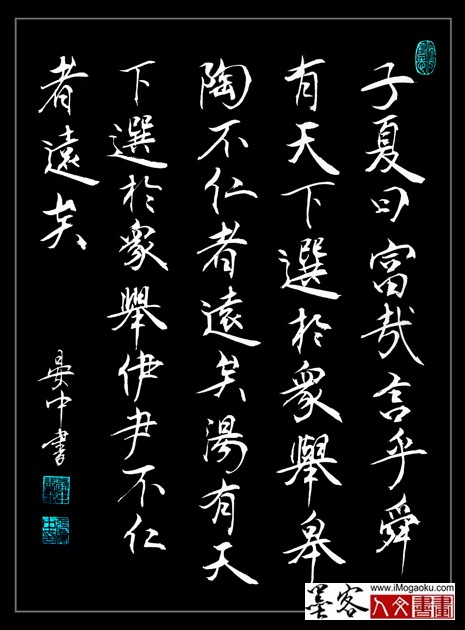 子夏曰富哉言乎舜
有天下選於衆舉皋
陶不仁者遠矣湯有天
下選於衆舉伊尹不仁
者遠矣
晏中書
www.iMogaoku.com
墨客
人文書畫